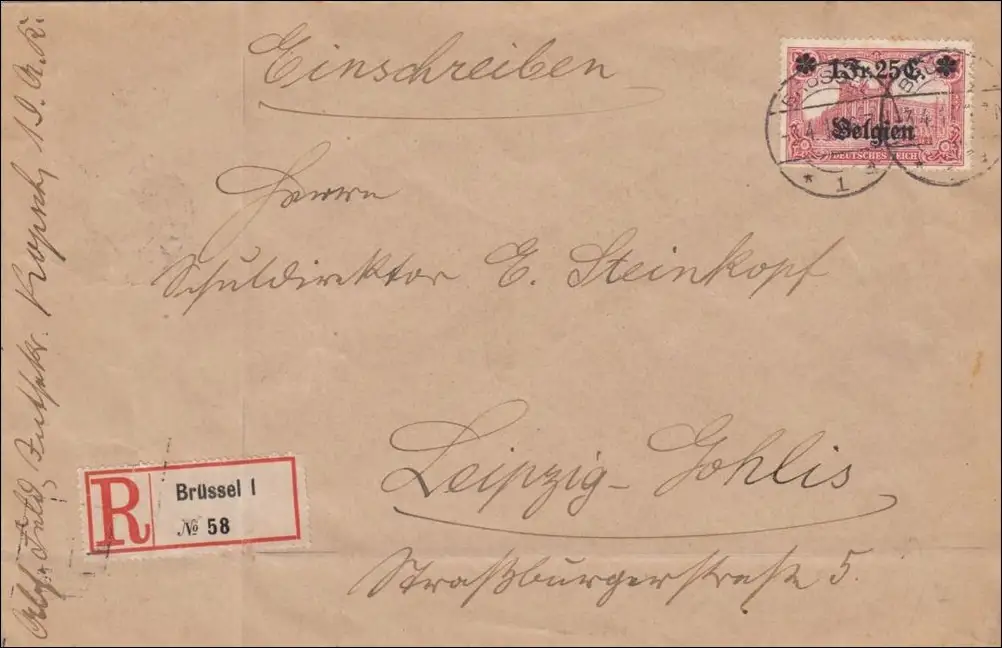 Einschreiben
1 Fr. 25 C.
Belgien
DEUTSCHES REICH
* 1
Herrn
Schuldirektor E. Steinkopf
Leipzig-Gohlis
Straßburgerstraße 5.
R
Brüssel 1
№ 58
Kopsch, I. A. K.